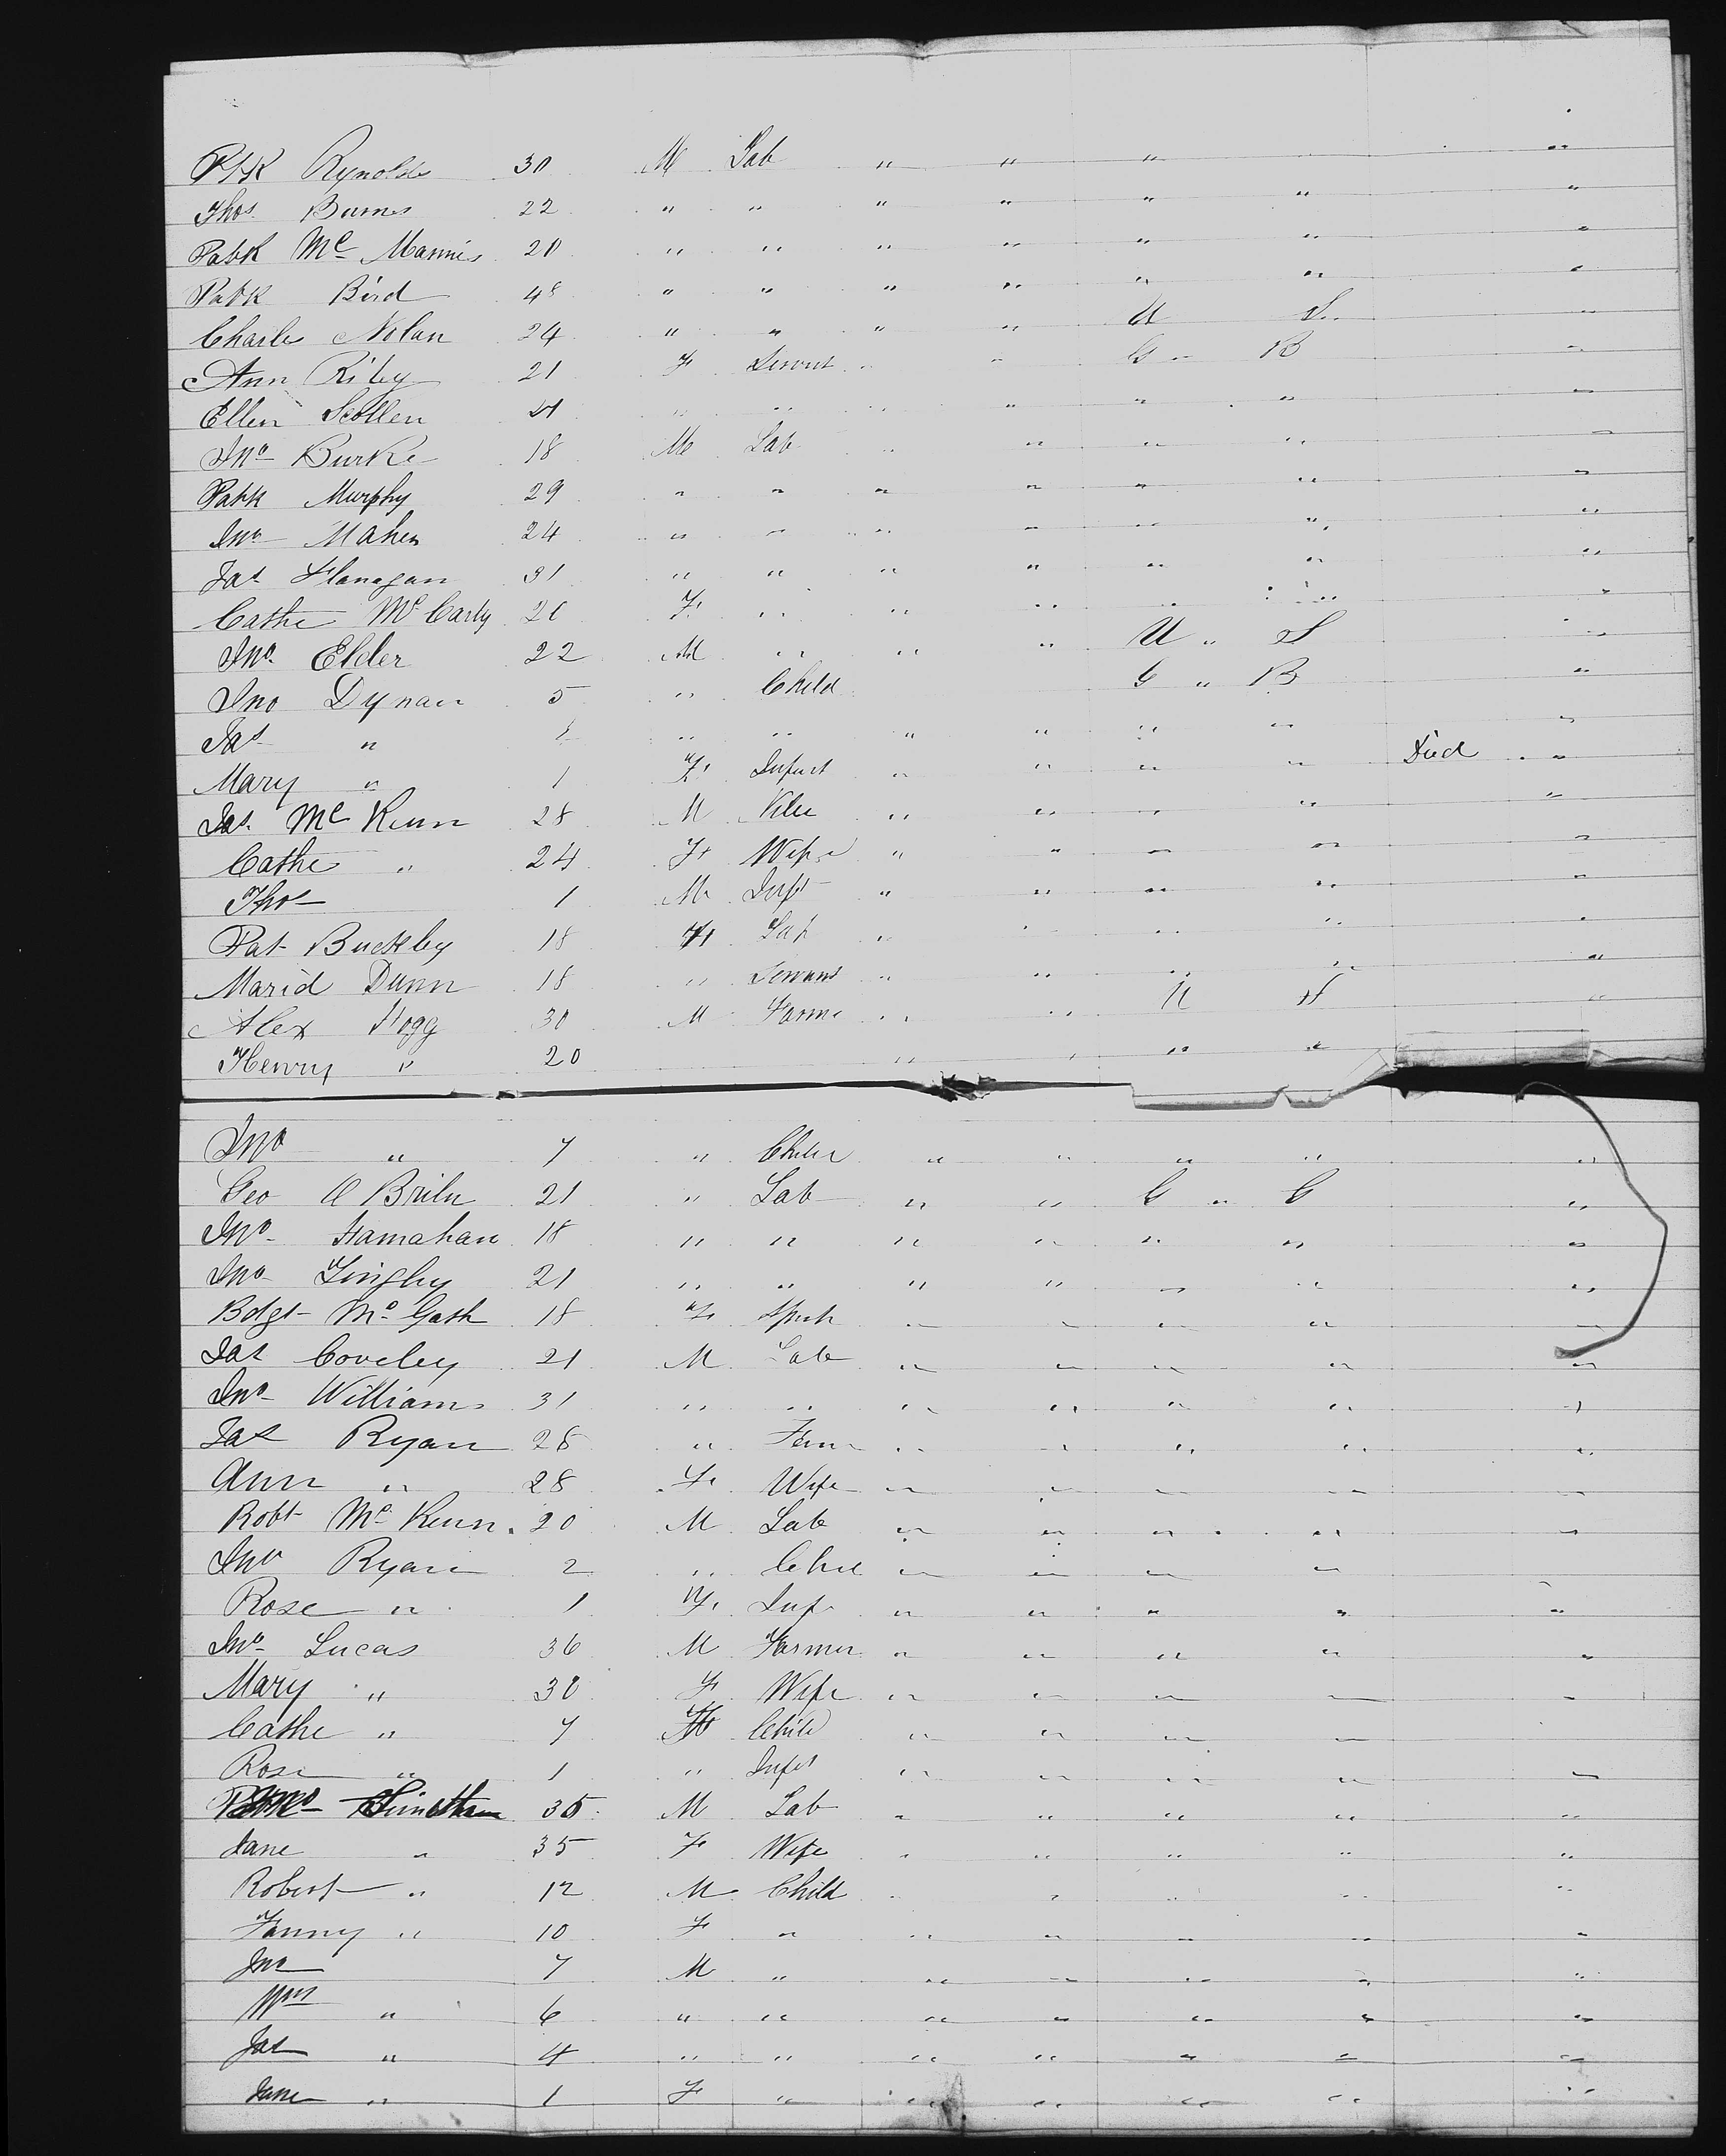 Ptk Rynolds 30 M Lab " " " "
Thos Burnes 22 " " " " " " "
Patk Mc Mannis 20 " " " " " " "
Patk Bird 48 " " " " " " "
Charles Nolan 24 " " " " U S "
Ann Riley 21 F " " G " B "
Ellen Scollen 21 " " " " " " "
Jno Burke 18 M Lab " " " " "
Patk Murphy 29 " " " " " " "
Jno Maher 24 " " " " " " "
Jas Flanagan 31 " " " " " " "
Cathe McCarty 20 F " " " " " "
Jno Elder 22 M " " " U " S "
Jno Dynan 5 " Child G " B "
Jas " " " " " " " "
Mary " 1 F Infant " " " " Died "
Jas. Mc Kenn 28 M " " " " "
Cathe " 24 F Wife " " " " "
Thos 1 M Inft " " " " "
Pat Buckley 18 Lab " " " " "
Dunn 18 " Servant " " " " "
Alex Hogg 30 M Farme " " U S "
Henry " 20 " " " "
Jno " 7 " Child " " " " "
Geo O Brien 21 " Lab " " G " "
Jno Hamahan 18 " " " " " " "
Jno 21 " " " " " " "
Bdgt Mc Gath 18 F " " " " "
Jas Coveley 21 M Lab " " " " "
Jno Williams 31 " " " " " " "
Jas Ryan 28 " " " " " "
Ann " 28 F Wife " " " " "
Robt Mc Kenn 20 M Lab " " " " "
Jno Ryan 2 " Child " " " "
Rose " 1 F Inf " " " " "
Jno Lucas 36 M Farmer " " " " "
Mary " 30 F Wife " " " " "
Cathe " 7 F Child " " " "
Rose " 1 " Inft " " " " "
35 M Lab " " " " "
Jane " 35 F Wife " " " " "
Robert " 12 M Child " " " " "
Fanny " 10 F " " " " " "
Jno 7 M " " " " " "
Wm " 6 " " " " " " "
Jas " 4 " " " " " " "
Jane " 1 F " " " " " "